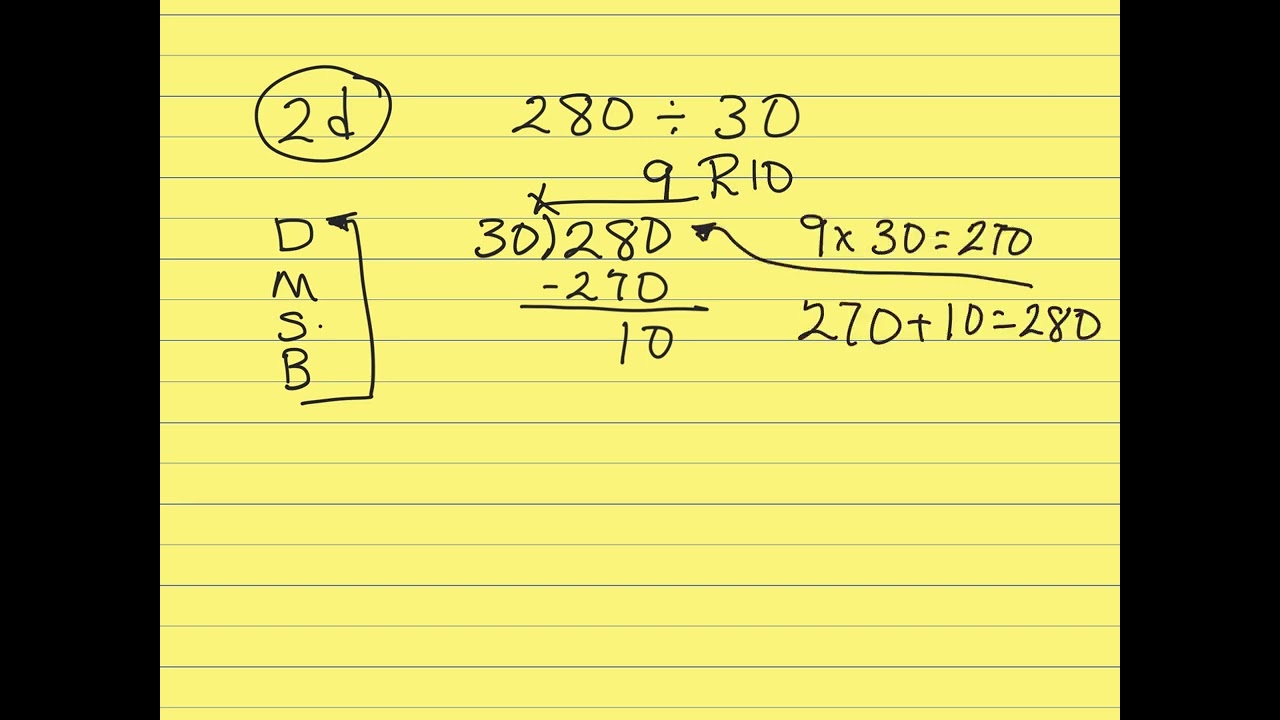 2d 280 ÷ 30
9 R10
D 30)280 9 x 30 = 270
M -270
S. 10 270 + 10 = 280
B